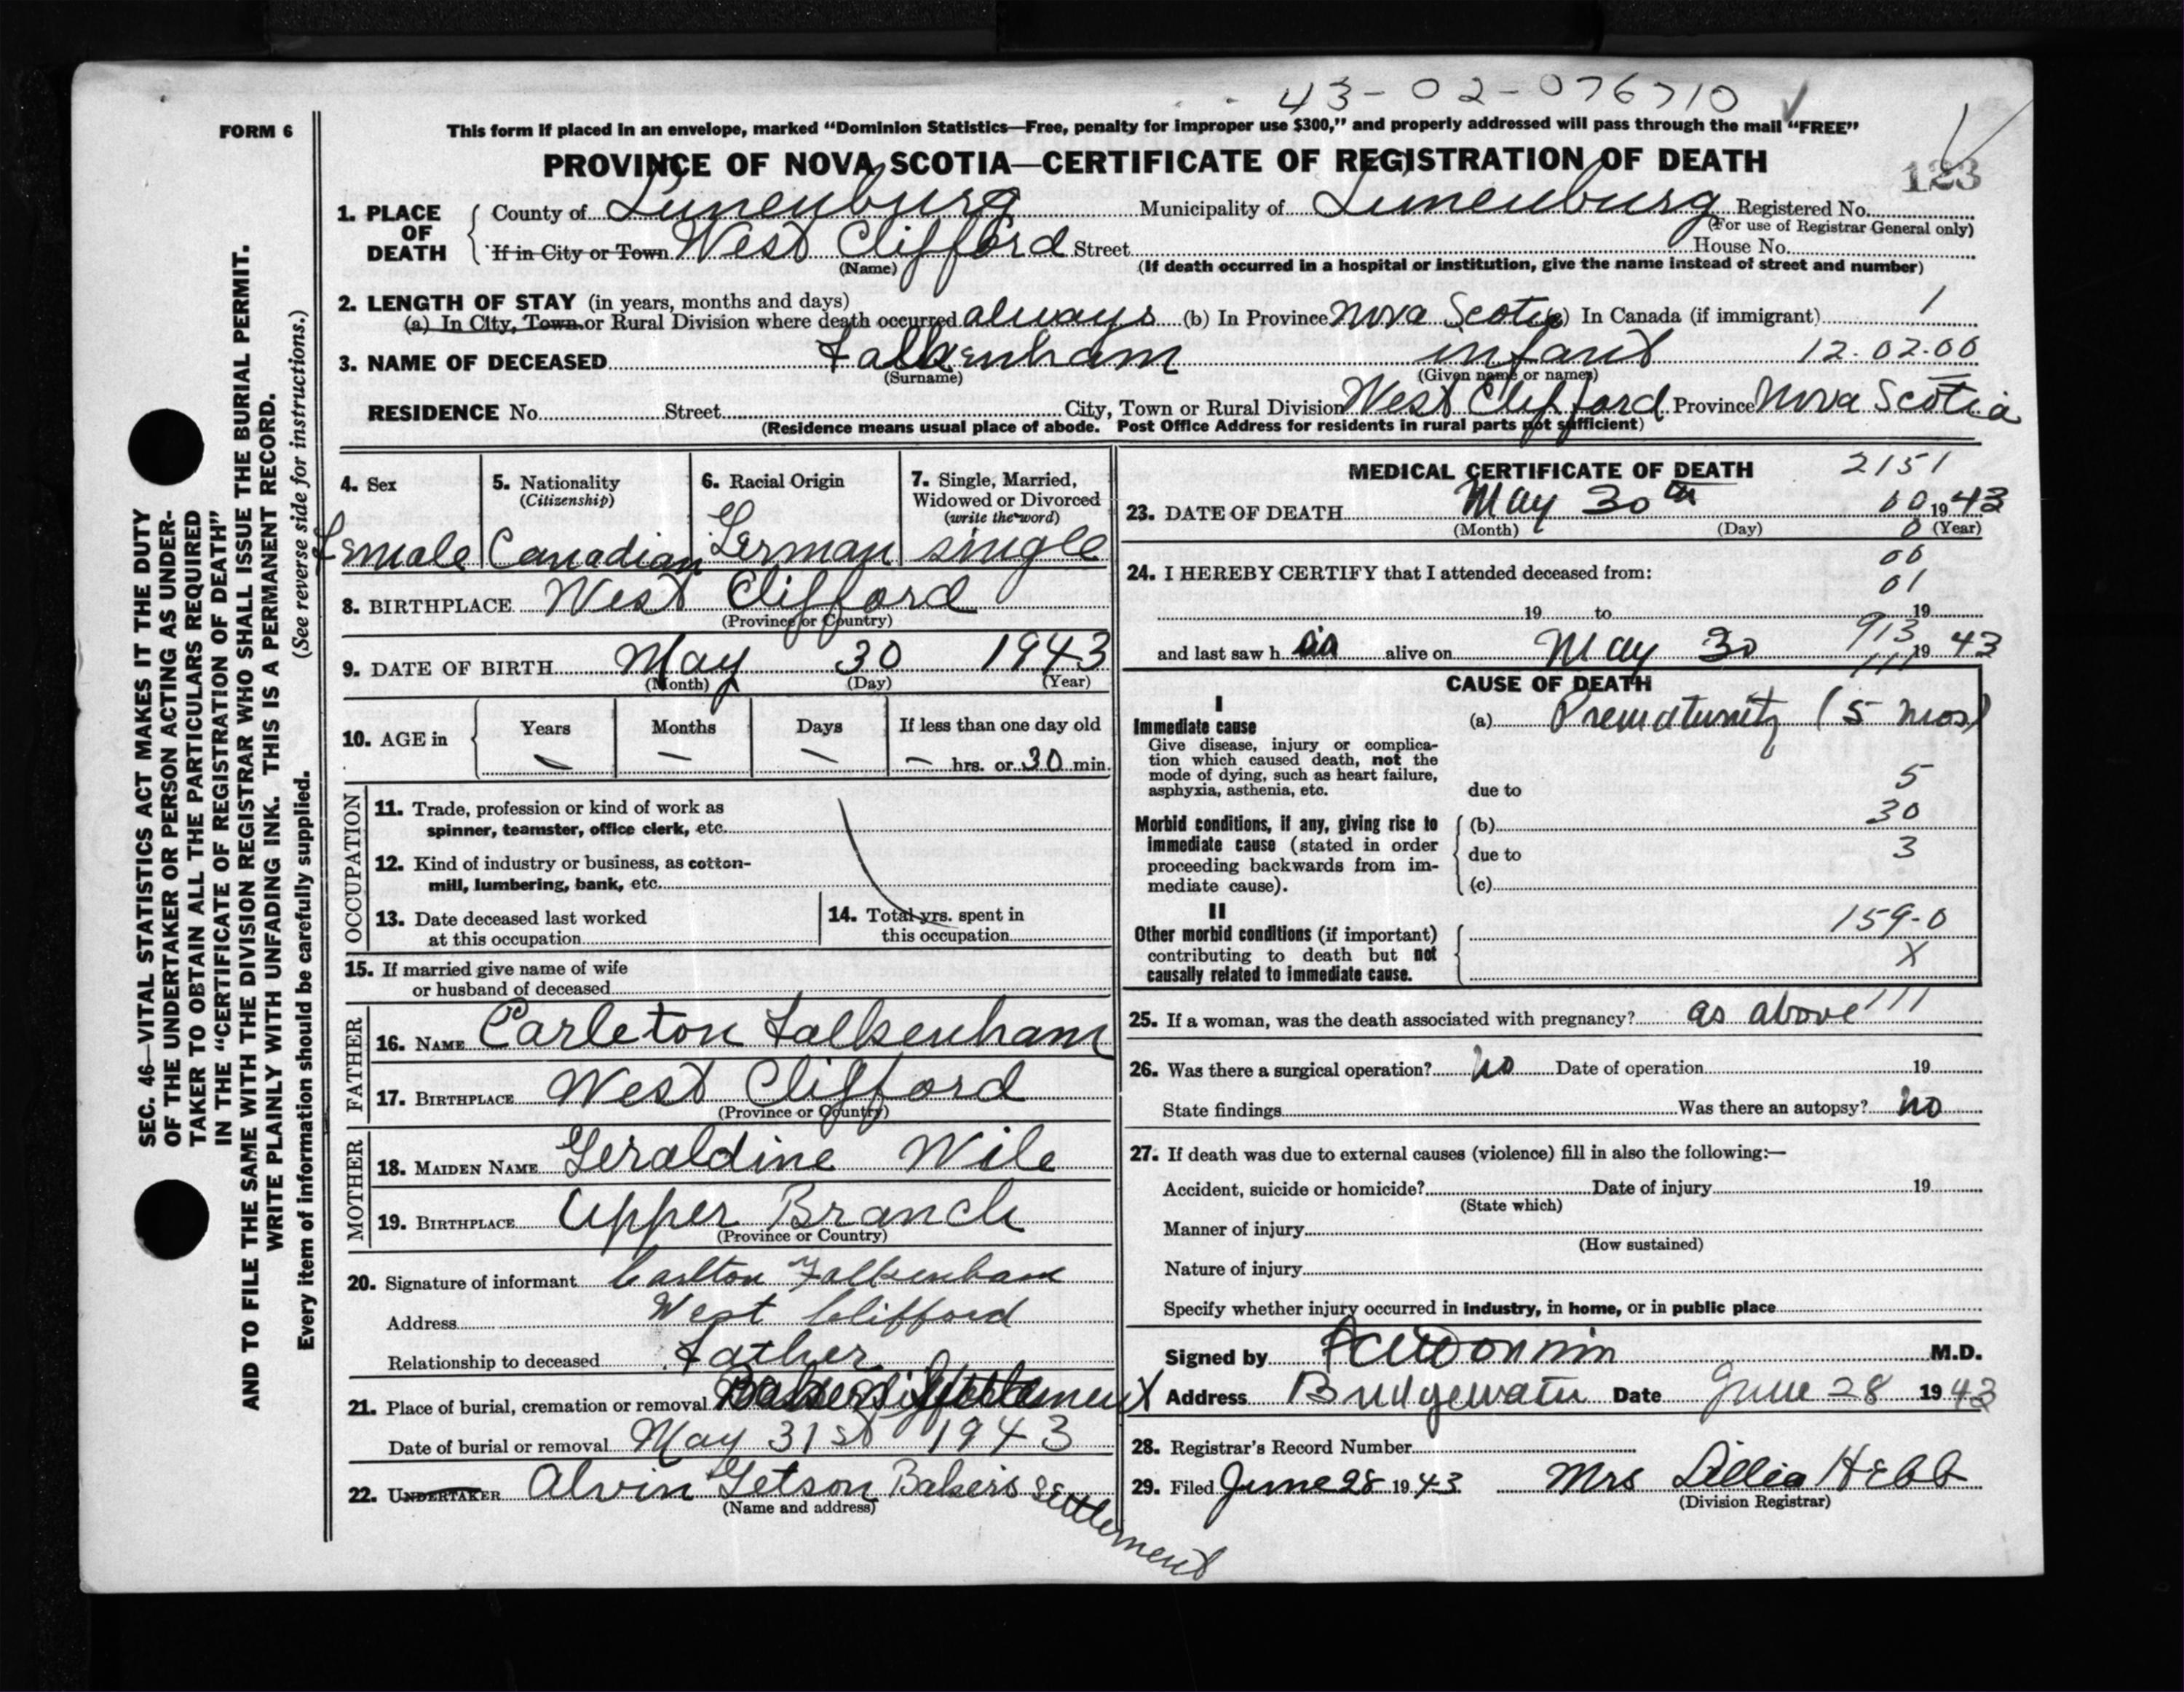 43-02-076710 ✓
FORM 6
This form if placed in an envelope, marked “Dominion Statistics—Free, penalty for improper use $300,” and properly addressed will pass through the mail “FREE”
PROVINCE OF NOVA SCOTIA—CERTIFICATE OF REGISTRATION OF DEATH
123
1. PLACE OF DEATH
County of Lunenburg Municipality of Lunenburg Registered No.
(For use of Registrar General only)
If in City or Town West Clifford Street House No.
(Name)
(If death occurred in a hospital or institution, give the name instead of street and number)
2. LENGTH OF STAY (in years, months and days)
(a) In City, Town or Rural Division where death occurred always (b) In Province Nova Scotia (c) In Canada (if immigrant) 1
3. NAME OF DECEASED Falkenham infant 12.02.00
(Surname) (Given name or names)
RESIDENCE No. Street City, Town or Rural Division West Clifford Province Nova Scotia
(Residence means usual place of abode. Post Office Address for residents in rural parts not sufficient)
4. Sex
Female
5. Nationality
(Citizenship)
Canadian
6. Racial Origin
German
7. Single, Married,
Widowed or Divorced
(write the word)
single
8. BIRTHPLACE West Clifford
(Province or Country)
9. DATE OF BIRTH May 30 1943
(Month) (Day) (Year)
10. AGE in
Years Months Days If less than one day old
— — — — hrs. or 30 min.
OCCUPATION
11. Trade, profession or kind of work as
spinner, teamster, office clerk, etc.
12. Kind of industry or business, as cotton-
mill, lumbering, bank, etc.
13. Date deceased last worked
at this occupation
14. Total yrs. spent in
this occupation
15. If married give name of wife
or husband of deceased
FATHER
16. NAME Carleton Falkenham
17. BIRTHPLACE West Clifford
(Province or Country)
MOTHER
18. MAIDEN NAME Geraldine Wile
19. BIRTHPLACE Upper Branch
(Province or Country)
20. Signature of informant Carlton Falkenham
Address West Clifford
Relationship to deceased Father
21. Place of burial, cremation or removal Bakers Settlement
Date of burial or removal May 31st 1943
22. UNDERTAKER Alvin Getson Bakers Settlement
(Name and address)
MEDICAL CERTIFICATE OF DEATH 2151
23. DATE OF DEATH May 30th 00 1943
(Month) (Day) 0 (Year)
00
24. I HEREBY CERTIFY that I attended deceased from:
01
19 to 19
913
and last saw h alive on May 30 1943
111
CAUSE OF DEATH
I
Immediate cause
Give disease, injury or complica-
tion which caused death, not the
mode of dying, such as heart failure,
asphyxia, asthenia, etc.
(a) Prematurity (5 mos)
due to 5
Morbid conditions, if any, giving rise to
immediate cause (stated in order
proceeding backwards from im-
mediate cause).
(b) 30
due to 3
(c)
II
Other morbid conditions (if important)
contributing to death but not
causally related to immediate cause.
159-0
X
25. If a woman, was the death associated with pregnancy? as above 111
26. Was there a surgical operation? no Date of operation 19
State findings Was there an autopsy? no
27. If death was due to external causes (violence) fill in also the following:—
Accident, suicide or homicide? Date of injury 19
(State which)
Manner of injury
(How sustained)
Nature of injury
Specify whether injury occurred in industry, in home, or in public place
Signed by M.D.
Address Bridgewater Date June 28 1943
28. Registrar's Record Number
29. Filed June 28 1943 Mrs Lillia Hebb
(Division Registrar)
SEC. 46—VITAL STATISTICS ACT MAKES IT THE DUTY
OF THE UNDERTAKER OR PERSON ACTING AS UNDER-
TAKER TO OBTAIN ALL THE PARTICULARS REQUIRED
IN THE “CERTIFICATE OF REGISTRATION OF DEATH”
AND TO FILE THE SAME WITH THE DIVISION REGISTRAR WHO SHALL ISSUE THE BURIAL PERMIT.
WRITE PLAINLY WITH UNFADING INK. THIS IS A PERMANENT RECORD.
Every item of information should be carefully supplied. (See reverse side for instructions.)